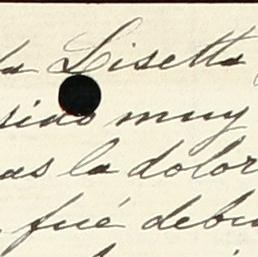 la Lisetta
sido muy
as la dolor
fué debi